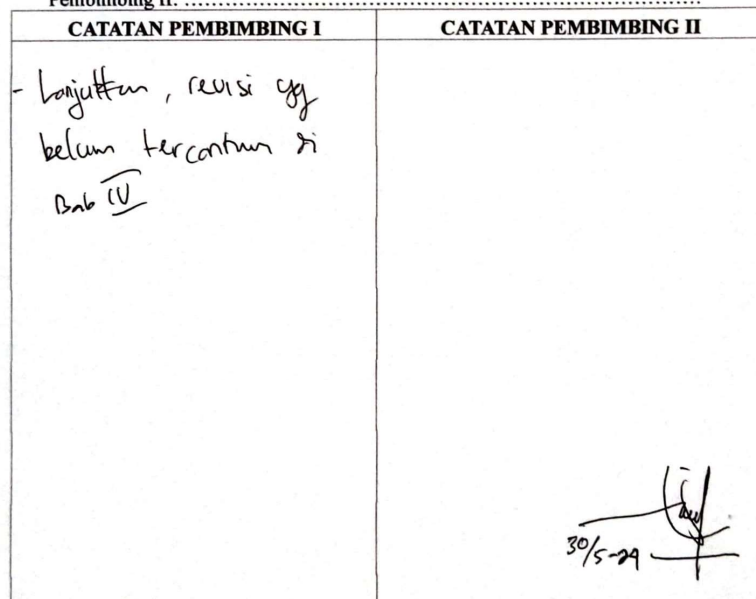 Pembimbing II: ........................................................................................
CATATAN PEMBIMBING I
CATATAN PEMBIMBING II
- Lanjutkan, revisi yg
belum tercantum di
Bab IV
30/5-24